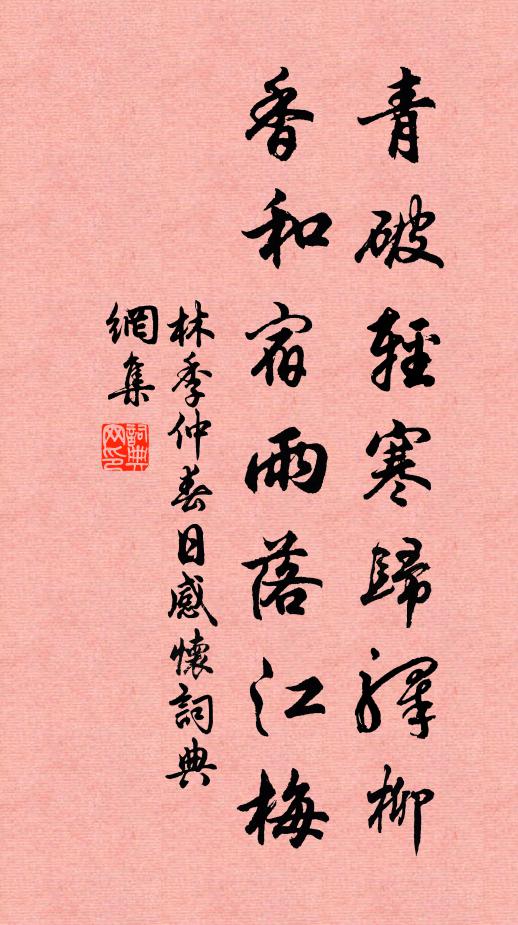 青破輕寒歸驛柳
香和宿雨落江梅
林季仲春日感懷詞典
網集
詞典網印